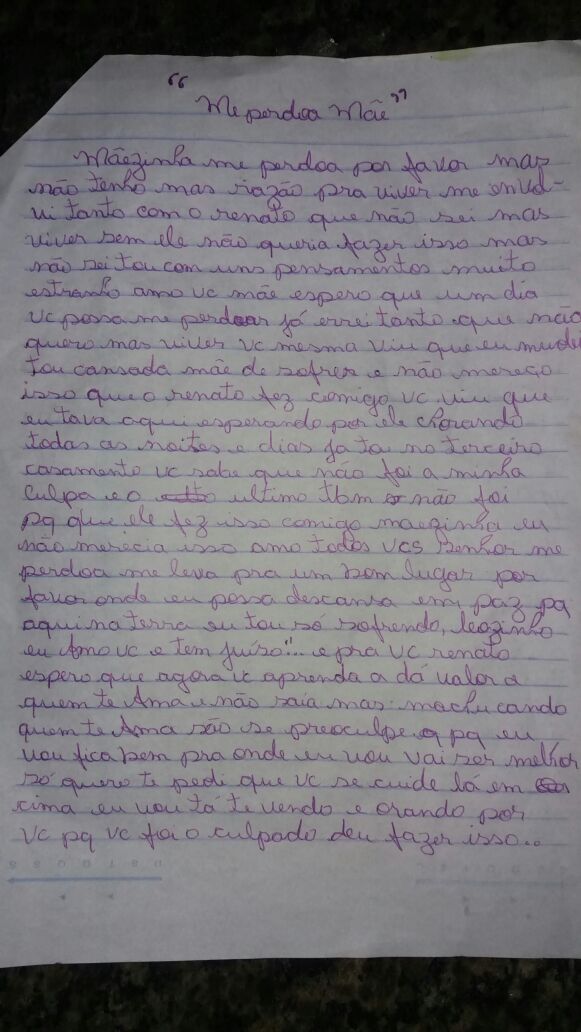 "Me perdoa Mãe"
Mãezinha me perdoa por favor mas
não tenho mas razão pra viver me envol-
vi tanto com o renato que não sei mas
viver sem ele não queria fazer isso mas
não sei tou com uns pensamentos muito
estranho amo vc mãe espero que um dia
vc possa me perdoar já errei tanto que não
quero mas viver vc mesma viu que eu mudei
tou cansada mãe de sofrer e não mereço
isso que o renato fez comigo vc viu que
eu tava aqui esperando por ele chorando
todas as noites e dias ja tou no terceiro
casamento vc sabe que não foi a minha
culpa e o ultimo tbm não foi
pq que ele fez isso comigo maezinha eu
não merecia isso amo todos vcs Senhor me
perdoa me leva pra um bom lugar por
favor onde eu possa descansa em paz pq
aqui na terra eu tou só sofrendo, leozinho
eu Amo vc e tem juíso"... e pra vc renato
espero que agora vc aprenda a dá valor a
quem te Ama e não saia mas machucando
quem te Ama não se preoculpe q pq eu
vou fica bem pra onde eu vou vai ser melhor
só quero te pedi que vc se cuide lá em
cima eu vou tá te vendo e orando por
vc pq vc foi o culpado deu fazer isso...